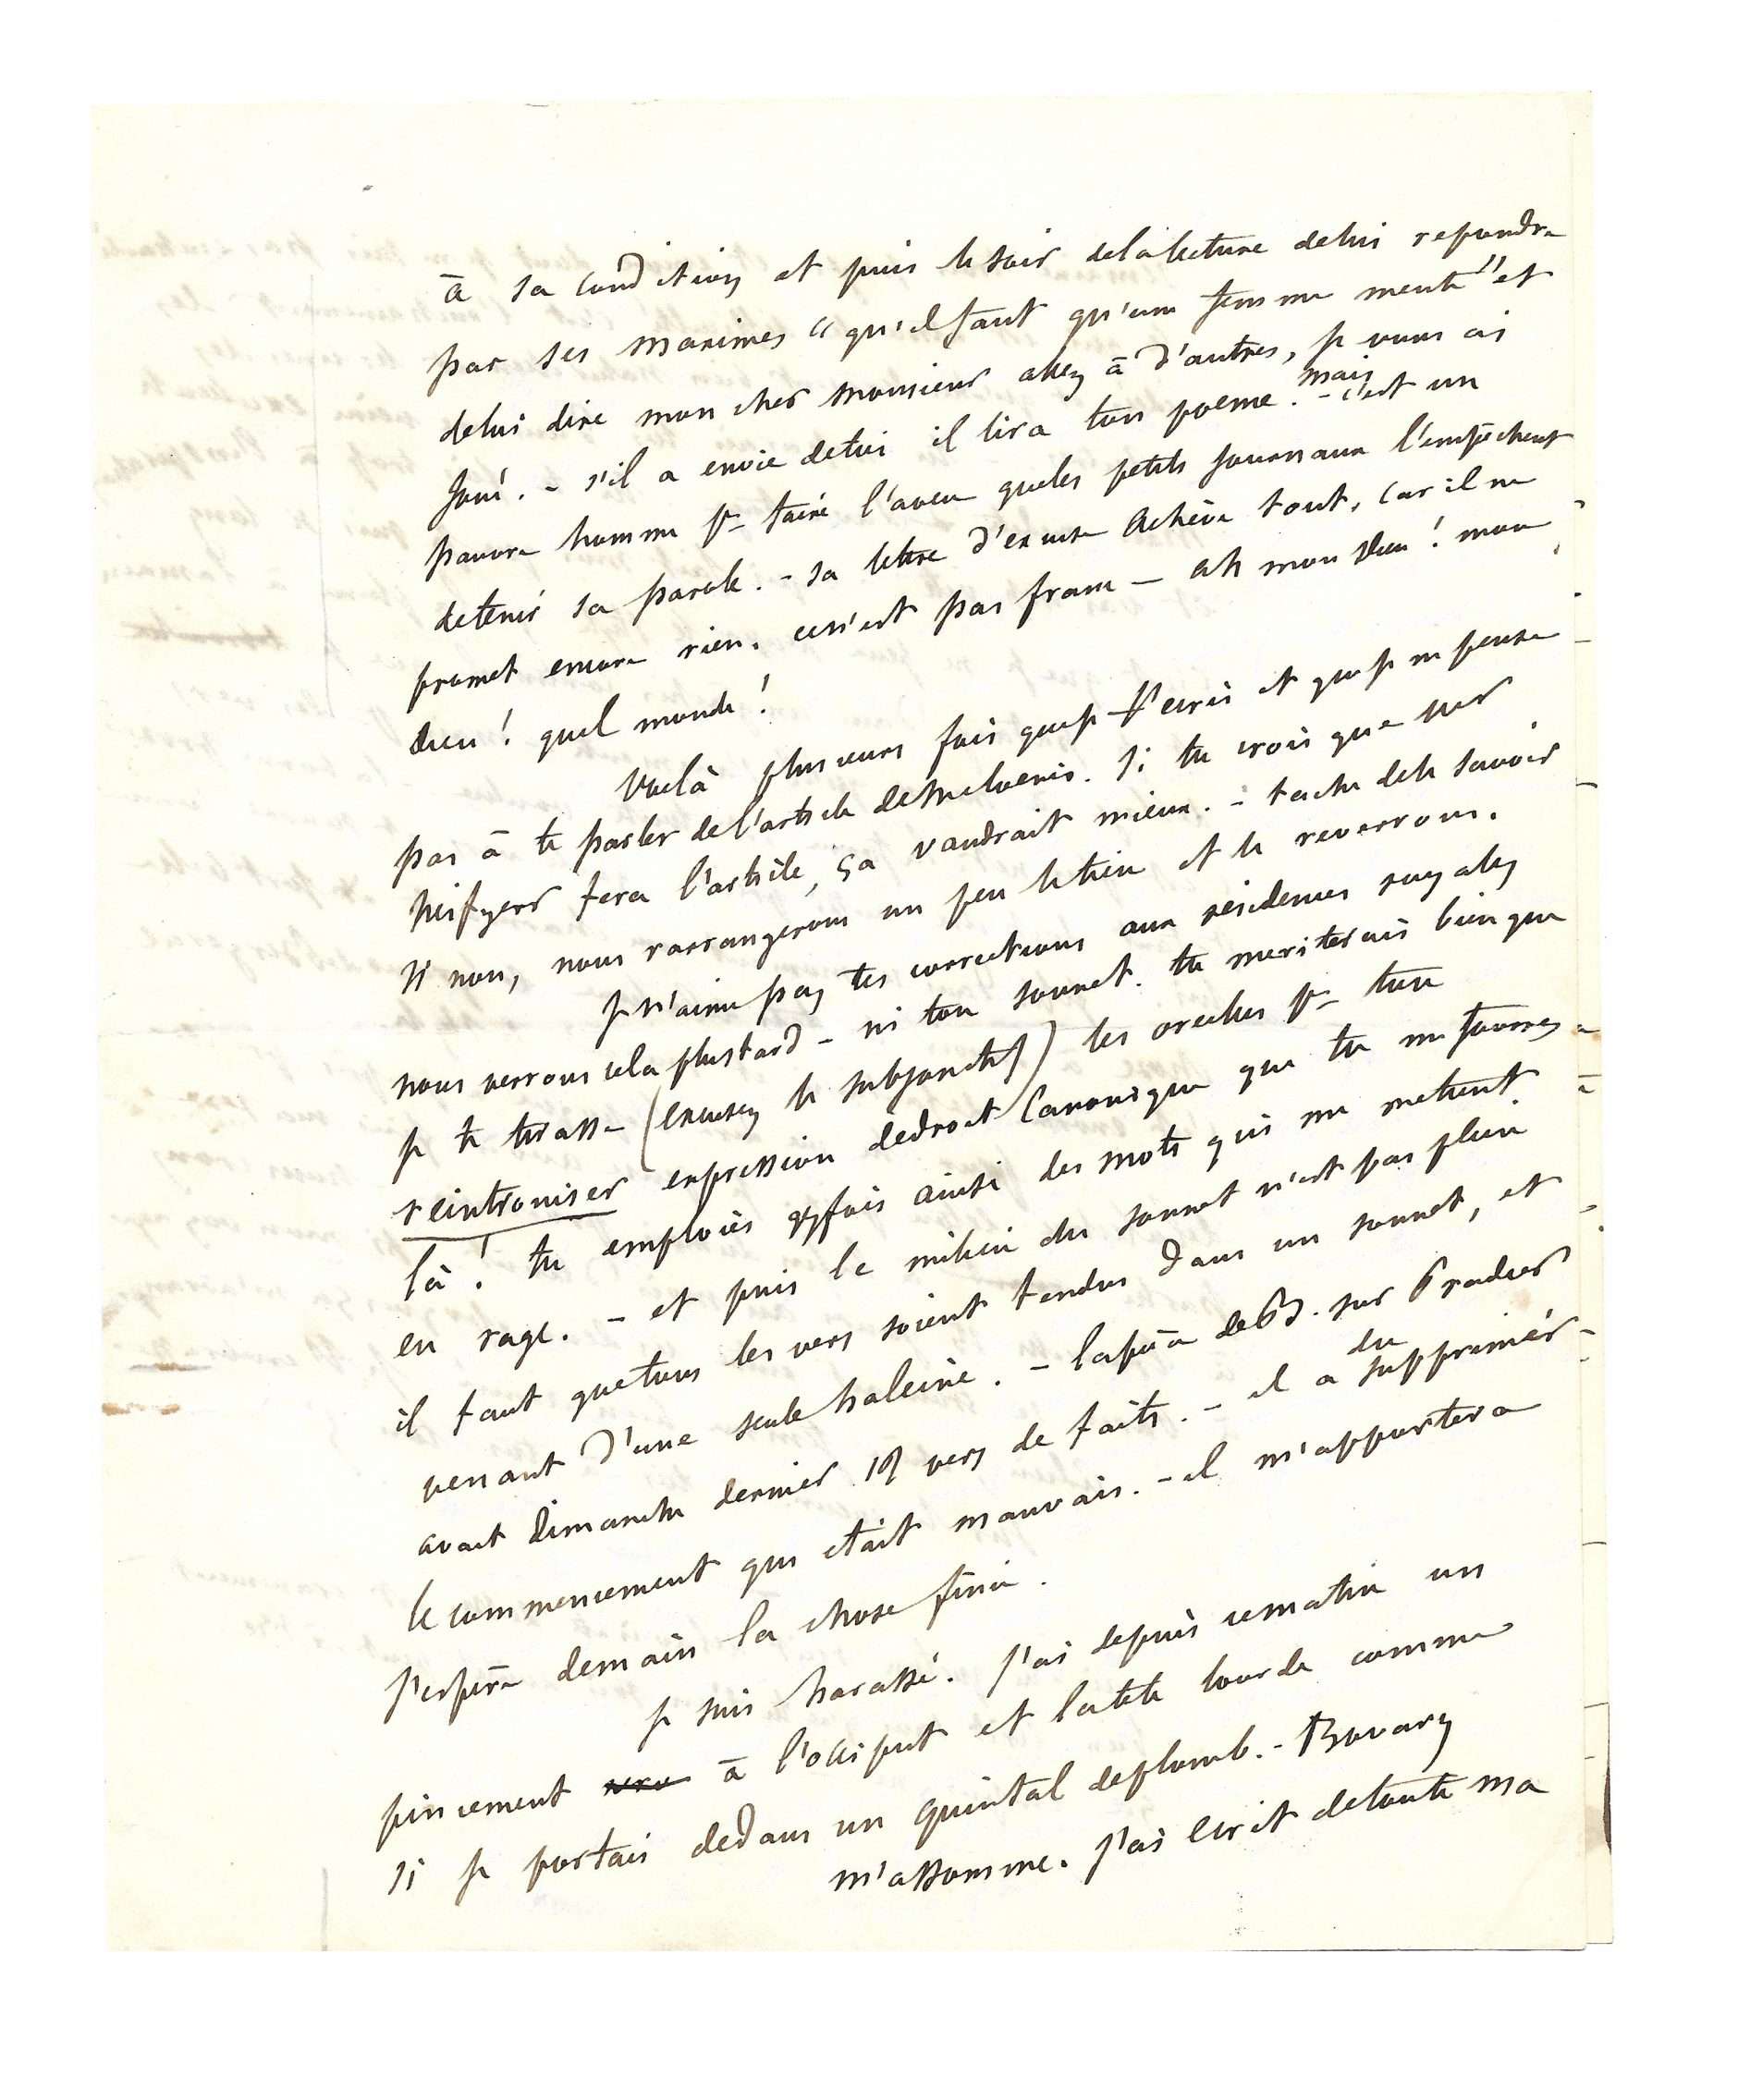 à sa condition et puis le soir dela lecture delui repondre
par ses maximes "qu'il faut qu'une femme mente" et
delui dire mon cher monsieur allez à d'autres, je vous ai
joué. - s'il a envie delui il lira ton poeme. - mais c'est un
pauvre homme pr faire l'aveu queles petits journaux l'empêchent
detenir sa parole. - sa lettre d'excuse achève tout, car il ne
promet encore rien. cen'est pas franc - ah mon Dieu! mon
dieu! quel monde!
Voilà plusieurs fois queje t'écris et queje ne pense
pas à te parler del'article deMelaenis. si tu crois que
fera l'article, ça vaudrait mieux. - tache dele savoir
si non, nous rarrangerons un peu letien et le reverrons.
je n'aime pas tes corrections aux résidences royales
nous verrons cela plustard - ni ton sonnet. tu meriterais bien que
je te tirasse (excusez le subjonctif) les oreilles pr ton
reintroniser expression dedroit Canonique que tu me fourres
là! tu emploies qqfois ainsi des mots qui me mettent
en rage. - et puis le milieu du sonnet n'est pas plein
il faut quetous les vers soient tendus dans un sonnet, et
venant d'une seule haleine. - lapièce deB. sur Pradier
avait Dimanche dernier 19 vers de faits. - il a du supprimer
le commencement qui était mauvais. - il m'apportera
j'espère demain la chose finie.
je suis harassé. j'ai depuis cematin un
pincement à l'occiput et latête lourde comme
si je portais dedans un quintal deplomb. - Bovary
m'assomme. j'ai écrit detoute ma